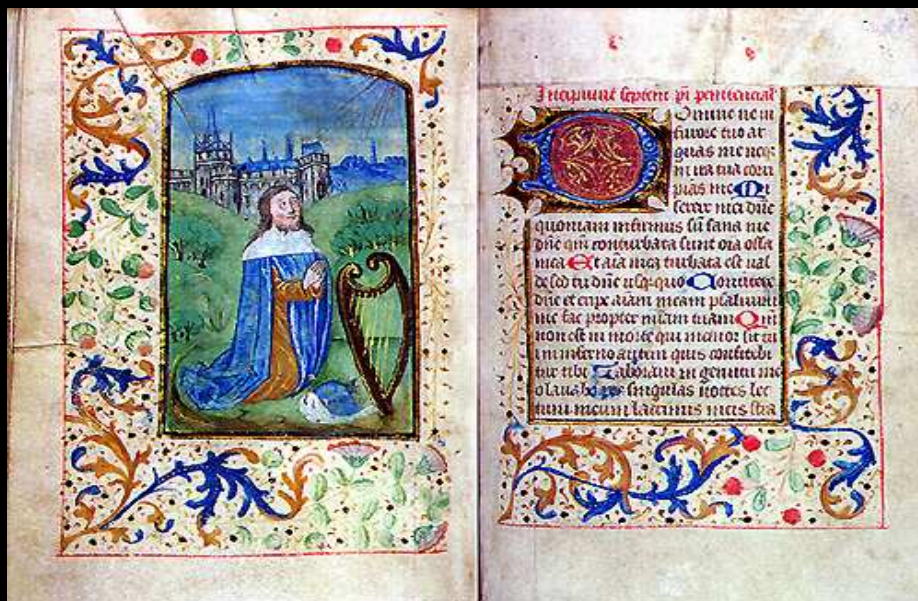 Incipiunt septem ps penitencial
Domine ne in
furore tuo ar
guas me neqz
in ira tua corri
pias me Mi
serere mei dne
quoniam infirmus su sana me
dne qm conturbata sunt oia ossa
mea Et aia mea turbata est val
de sed tu dne usquequo Convertere
dne et eripe aiam meam saluum
me fac propter miam tuam Qm
non est in morte qui memor sit tui
in inferno autem quis confitebi
tur tibi Laboraui in gemitu meo
lauabo per singulas noctes lec
tum meum lacrimis meis stra